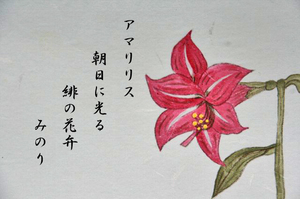 アマリリス
朝日に光る
緋の花弁
みのり